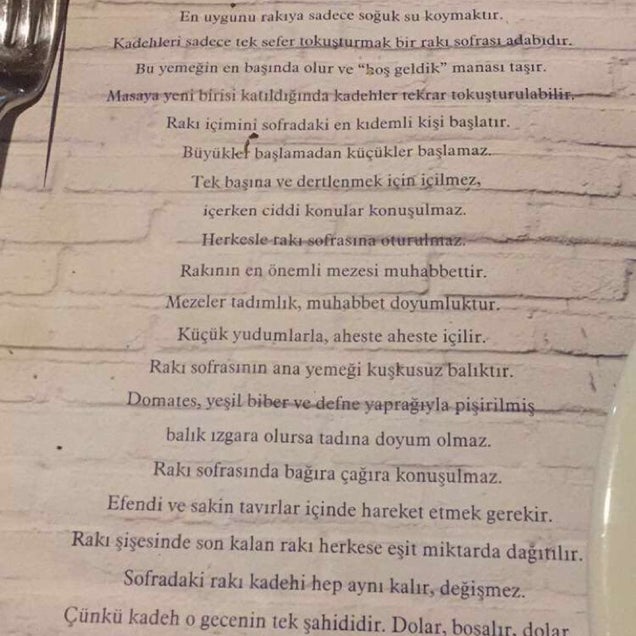 En uygunu rakıya sadece soğuk su koymaktır.
Kadehleri sadece tek sefer tokuşturmak bir rakı sofrası adabıdır.
Bu yemeğin en başında olur ve “hoş geldik” manası taşır.
Masaya yeni birisi katıldığında kadehler tekrar tokuşturulabilir.
Rakı içimini sofradaki en kıdemli kişi başlatır.
Büyükler başlamadan küçükler başlamaz.
Tek başına ve dertlenmek için içilmez,
içerken ciddi konular konuşulmaz.
Herkesle rakı sofrasına oturulmaz.
Rakının en önemli mezesi muhabbettir.
Mezeler tadımlık, muhabbet doyumluktur.
Küçük yudumlarla, aheste aheste içilir.
Rakı sofrasının ana yemeği kuşkusuz balıktır.
Domates, yeşil biber ve defne yaprağıyla pişirilmiş
balık ızgara olursa tadına doyum olmaz.
Rakı sofrasında bağıra çağıra konuşulmaz.
Efendi ve sakin tavırlar içinde hareket etmek gerekir.
Rakı şişesinde son kalan rakı herkese eşit miktarda dağıtılır.
Sofradaki rakı kadehi hep aynı kalır, değişmez.
Çünkü kadeh o gecenin tek şahididir. Dolar, boşalır, dolar